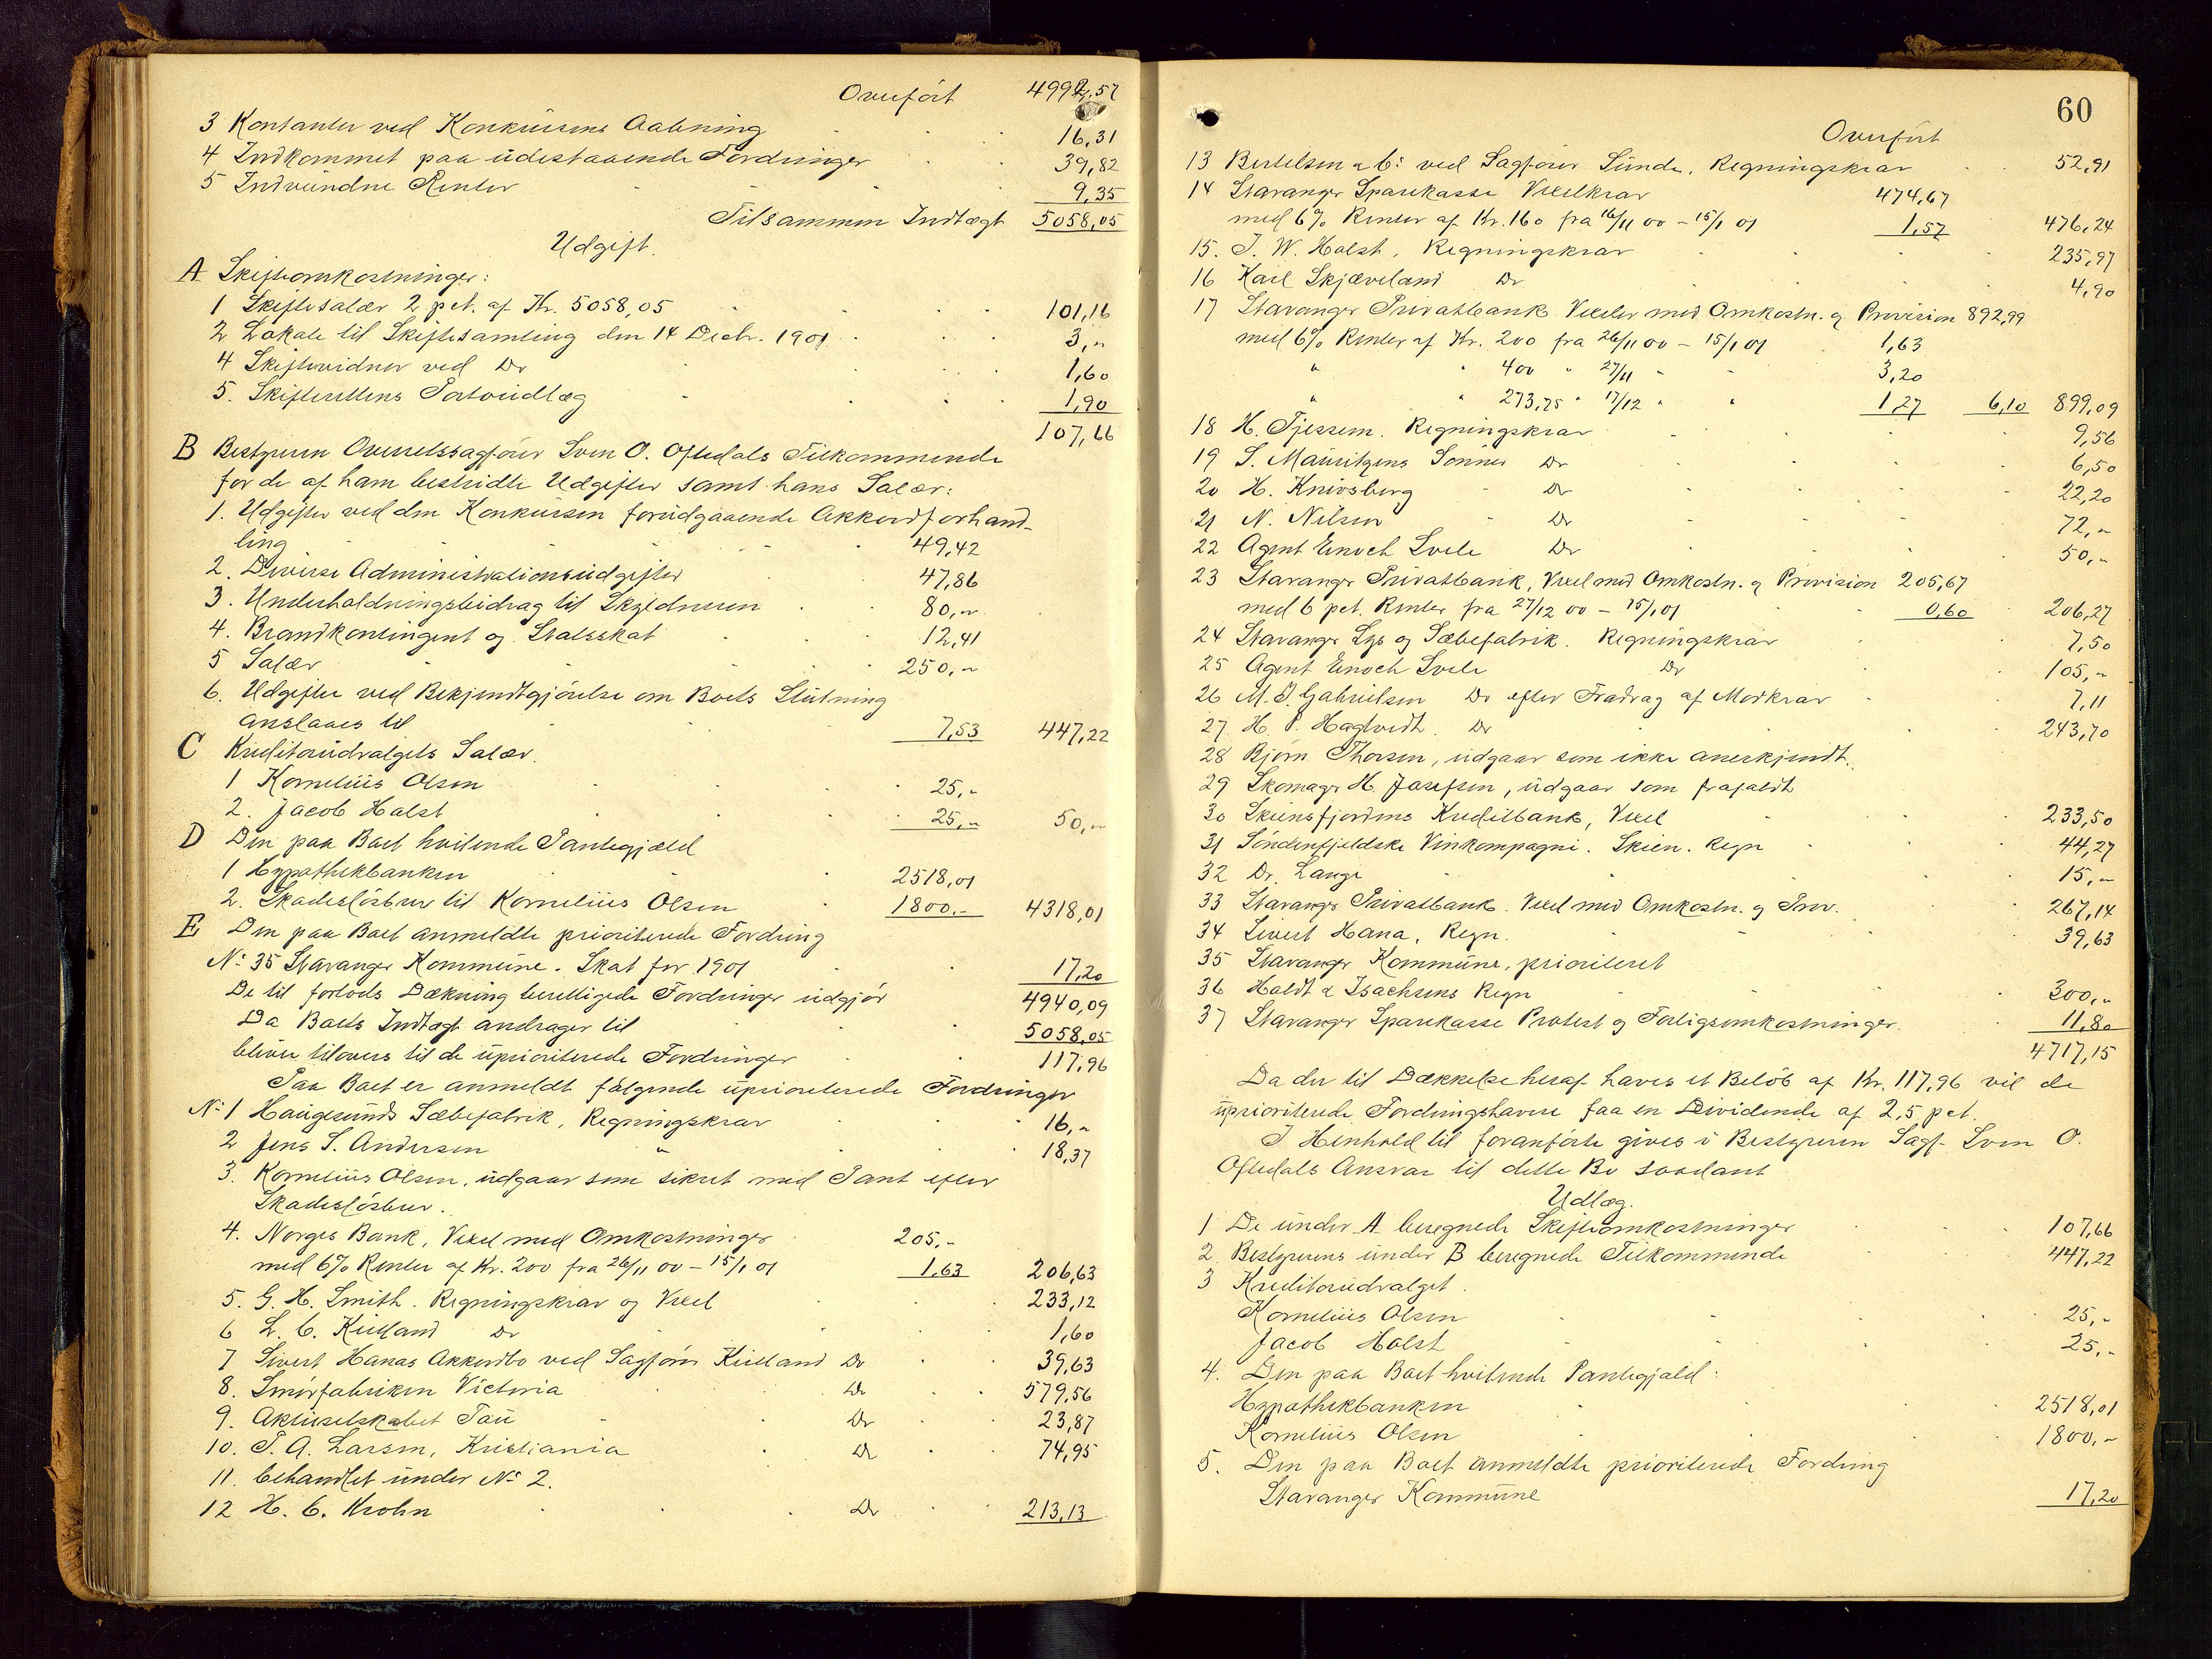 Overført 4992,57
3 Kontanter ved Konkursens Aabning 16,31
4 Indkommet paa udestaaende Fordringer 39,82
5 Indvundne Renter 9,35
Tilsammen Indtægt 5058,05
Udgift.
A Skifteomkostninger:
1 Skiftesalær 2 pct. af Kr. 5058,05 101,16
2 Lokale til Skiftesamling den 14 Decbr. 1901 3,"
4 Skiftevidner ved Do 1,60
5. Skifterettens Portoudlæg 1,90
107,66
B Bestyreren Overretssagfører Sven O. Oftedals Tilkommende
for de af ham bestridte Udgifter samt hans Salær:
1. Udgifter ved den Konkursen forudgaaende Akkordforhand-
ling 49,42
2. Diverse Administrationsudgifter 47,86
3. Underholdningsbidrag til Skyldneren 80,"
4. Brandkontingent og Statsskat 12,41
5 Salær 250,"
6. Udgifter ved Bekjendtgjørelse om Boets Slutning
anslaaes til 7,53 447,22
C Kreditorudvalgets Salær.
1 Kornelius Olsen 25,"
2. Jacob Halst 25,"  50,"
D Den paa Boet hvilende Pantegjæld
1 Hypothekbanken 2518,01
2. Skadesløsbrev til Kornelius Olsen 1800,- 4318,01
E Den paa Boet anmeldte prioriterede Fordring
No 35 Stavanger Kommune. Skat for 1901 17,20
De til forlods Dækning berettigede Fordringer udgjør 4940,09
Da Boets Indtægt andrager til 5058,05
bliver tilovers til de uprioriterede Fordringer 117,96
Paa Boet er anmeldt følgende uprioriterede Fordringer
No 1 Haugesunds Sæbefabrik, Regningskrav 16,"
2 Jens S. Andersen " 18,37
3. Kornelius Olsen, udgaar som sikret med Pant efter
Skadesløsbrev.
4. Norges Bank, Vexel med Omkostninger 205,-
med 6% Renter af Kr. 200 fra 26/11 00 - 15/1 01 1,63 206,63
5. G. H. Smith. Regningskrav og Vexel 233,12
6 L. C. Kielland Do 1,60
7 Sivert Hanas Akkordbo ved Sagfører Kielland Do 39,63
8. Smørfabriken Victoria Do 579,56
9. Aktieselskabet Tau Do 23,87
10. P. A. Larsen, Kristiania Do 74,95
11. behandlet under No 2.
12 H. C. Krohn Do 213,13
60
Overført
13 Bertelsen & Co ved Sagfører Sunde. Regningskrav 52,91
14 Stavanger Sparekasse Vexelkrav 474,67
med 6% Renter af Kr. 160 fra 16/11 00 - 15/1 01 1,57 476,24
15. J. W. Halst. Regningskrav 235,97
16 Karl Skjæveland Do 4,90
17 Stavanger Privatbank Vexler med Omkostn. og Provision 892,99
med 6% Renter af Kr. 200 fra 26/11 00 - 15/1 01 1,63
" " 400 " 27/11 " " 3,20
" " 273,75 " 17/12 " " 1,27 6,10 899,09
18 H. Tjessem. Regningskrav 9,56
19 S. Mauritzens Sønner Do 6,50
20 H. Knivsberg Do 22,20
21 N. Nilsen Do 72,"
22 Agent Enoch Svele Do 50,"
23 Stavanger Privatbank, Vexel med Omkostn. og Provision 205,67
med 6 pct. Renter fra 27/12 00 - 15/1 01 0,60 206,27
24 Stavanger Lys og Sæbefabrik. Regningskrav 7,50
25 Agent Enoch Svele Do 105,"
26 M. J. Gabrielsen Do efter Fradrag af Modkrav 7,11
27. H. P. Hagtvedt. Do 243,70
28 Bjørn Thorsen, udgaar som ikke anerkjendt.
29 Skomager H. Josefsen, udgaar som frafaldt
30 Skiensfjordens Kreditbank, Vexel 233,50
31 Søndenfjeldske Vinkompagni. Skien. Regn 44,27
32 Dr. Lange 15,"
33 Stavanger Privatbank. Vexel med Omkostn. og Prov. 267,14
34 Sivert Hana, Regn. 39,63
35 Stavanger Kommune, prioriteret
36 Holdt & Isachsens Regn 300,"
37 Stavanger Sparekasse Protest og Forligsomkostninger 11,80
4717,15
Da der til Dækkelse heraf haves et Beløb af Kr. 117,96 vil de
uprioriterede Fordringshavere faa en Dividende af 2,5 pct.
I Henhold til foranførte gives i Bestyreren Sagf. Sven O.
Oftedals Ansvar til dette Bo saadant
Udlæg.
1 De under A beregnede Skifteomkostninger 107,66
2 Bestyrerens under B beregnede Tilkommende 447,22
3 Kreditorudvalget.
Kornelius Olsen 25,"
Jacob Halst 25,"
4. Den paa Boet hvilende Pantegjæld:
Hypothekbanken 2518,01
Kornelius Olsen 1800,"
5. Den paa Boet anmeldte prioriterede Fordring
Stavanger Kommune 17,20